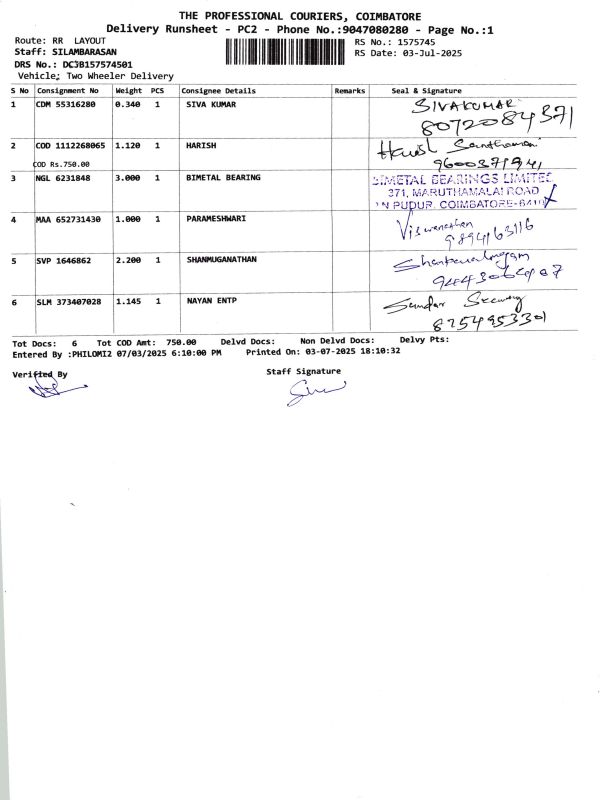 THE PROFESSIONAL COURIERS, COIMBATORE
Delivery Runsheet - PC2 - Phone No.:9047080280 - Page No.:1
Route: RR LAYOUT RS No.: 1575745
Staff: SILAMBARASAN RS Date: 03-Jul-2025
DRS No.: DC3B157574501
Vehicle; Two Wheeler Delivery
S No Consignment No Weight PCS Consignee Details Remarks Seal & Signature
1 CDM 55316280 0.340 1 SIVA KUMAR SIVAKUMAR
8072084371
2 COD 1112268065 1.120 1 HARISH Harish
COD Rs.750.00 9600371941
3 NGL 6231848 3.000 1 BIMETAL BEARING BIMETAL BEARINGS LIMITED
371, MARUTHAMALAI ROAD
PUDUR, COIMBATORE-6410
4 MAA 652731430 1.000 1 PARAMESHWARI Viswanathan
9894163116
5 SVP 1646862 2.200 1 SHANMUGANATHAN
6 SLM 373407028 1.145 1 NAYAN ENTP Sundar
8754953301
Tot Docs: 6 Tot COD Amt: 750.00 Delvd Docs: Non Delvd Docs: Delvy Pts:
Entered By :PHILOMI2 07/03/2025 6:10:00 PM Printed On: 03-07-2025 18:10:32
Verified By Staff Signature